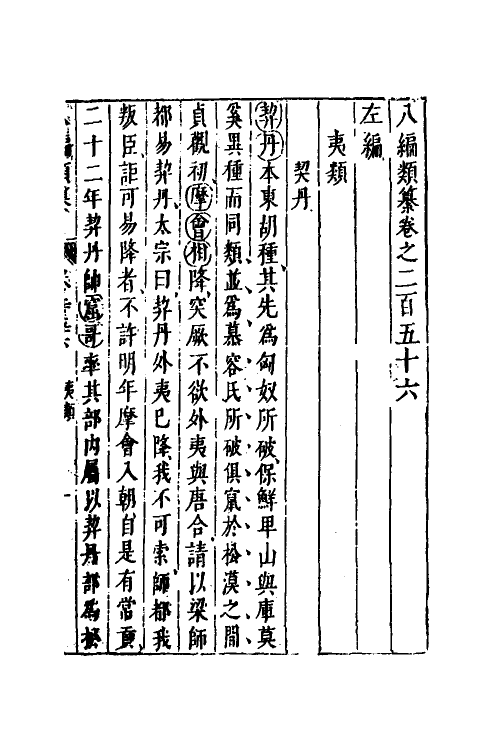 八編類纂卷之二百五十六
左編
夷類
契丹
契丹本東胡種其先爲匈奴所破保鮮卑山與庫莫
奚異種而同類並爲慕容氏所破俱竄於松漠之間
貞觀初摩會相降突厥不欲外夷與唐合請以梁師
都易契丹太宗曰契丹外夷已降我不可索師都我
叛臣詎可易降者不許明年摩會入朝自是有常貢
二十二年契丹帥窟哥率其部內屬以契丹部爲松
夷類